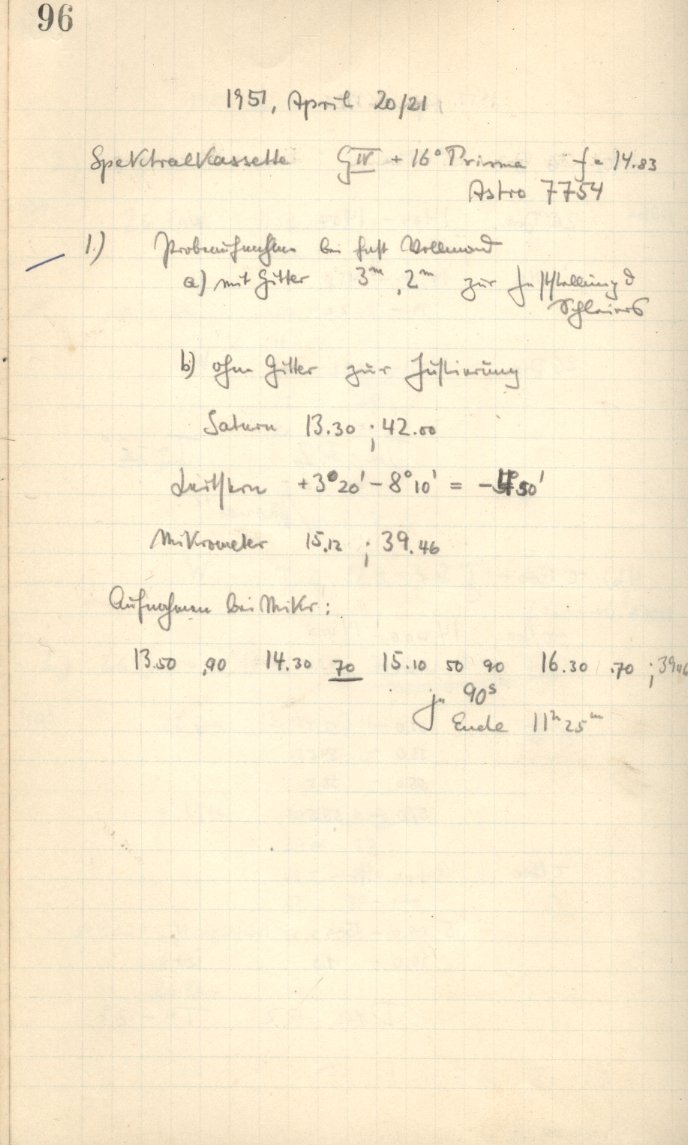 96
1951, April 20/21
Spektralkassette G IV + 16° Prisma f = 14.83
Astro 7754
1.) Probeaufnahmen bei fast Vollmond
a) mit Gitter 3ᵐ, 2ᵐ zur Feststellung d
Schleiers
b) ohne Gitter zur Justierung
Saturn 13.30 ; 42.00
Leitstern +3°20' - 8°10' = -4°50'
Mikrometer 15.12 ; 39.46
Aufnahmen bei Mikr:
13.50 .90 14.30 70 15.10 50 90 16.30 .70 ; 39.46
je 90ˢ
Ende 11ʰ 25ᵐ